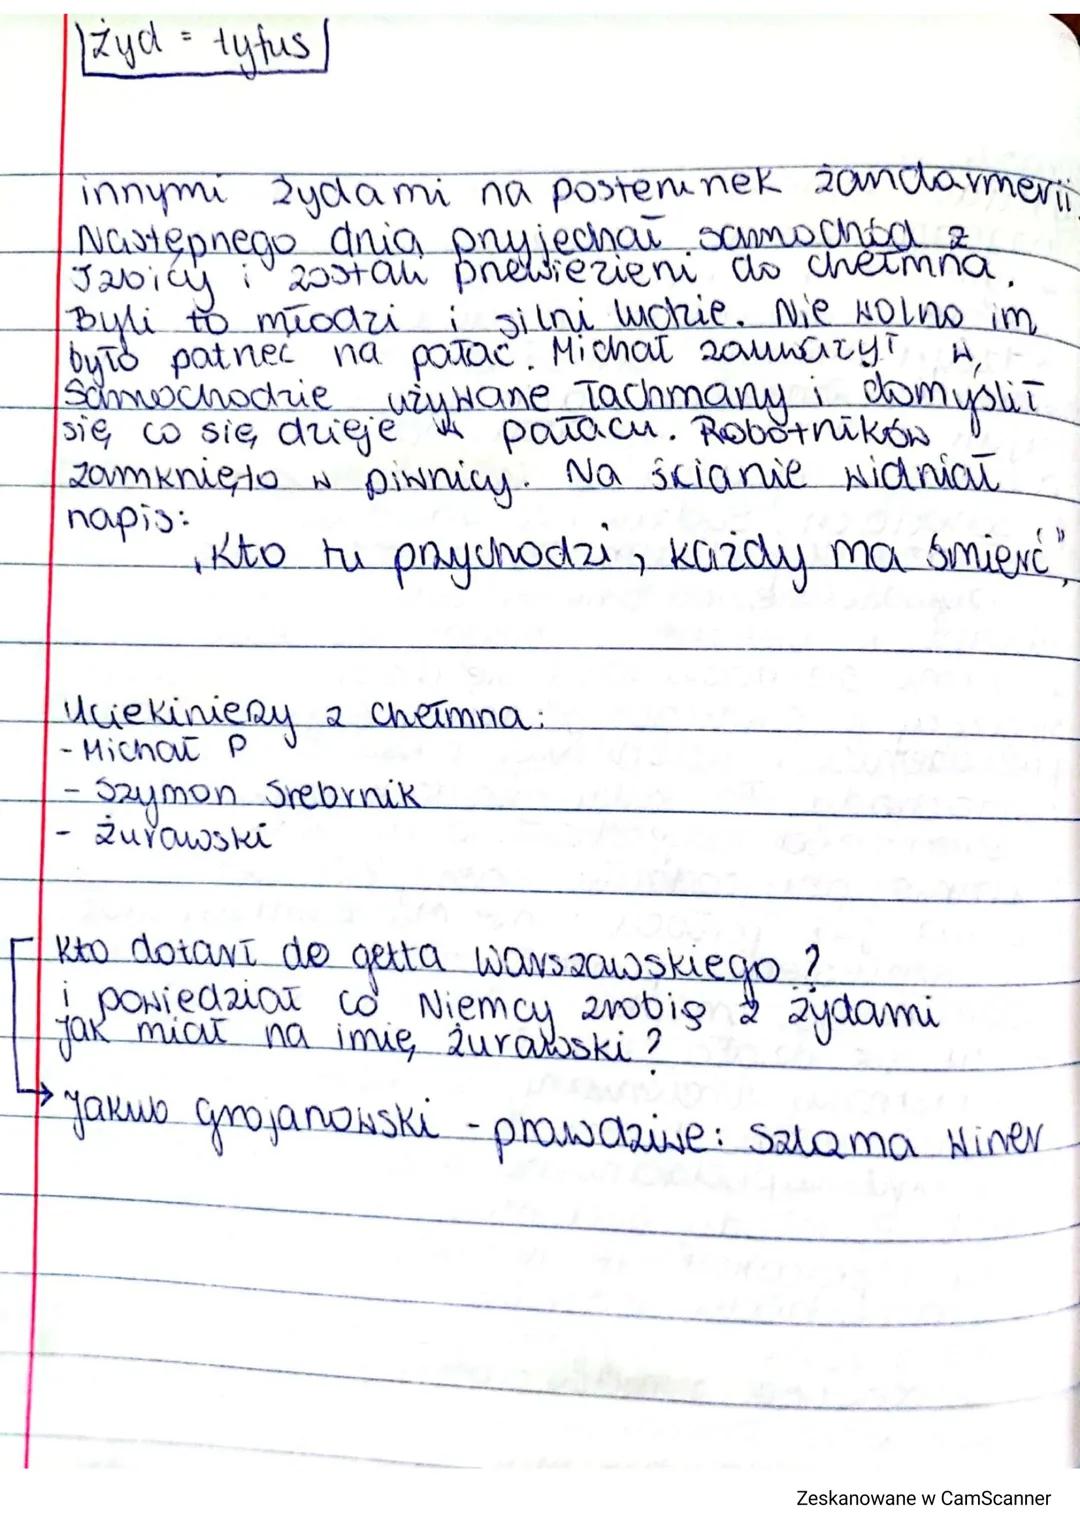 żyd = tyfus
innymi żydami na posterunek żandarmerii
Następnego dnia przyjechał samochód z
Izbicy i zostali przewiezieni do chełmna.
Byli to młodzi i silni ludzie. Nie wolno im
było patrzeć na pałac. Michał zauważył w
samochodzie używane łachmany i domyślił
się co się dzieje w pałacu. Robotników
zamknięto w piwnicy. Na ścianie widniał
napis:
„Kto tu przychodzi, każdy ma śmierć”
Uciekinierzy z chełmna:
- Michał P
- Szymon Srebrnik
- żurawski
Kto dotarł do getta warszawskiego?
i powiedział co Niemcy zrobią z żydami
jak miał na imię żurawski?
Jakub grojanowski - prawdziwe: Szlama winer
Zeskanowane w CamScanner